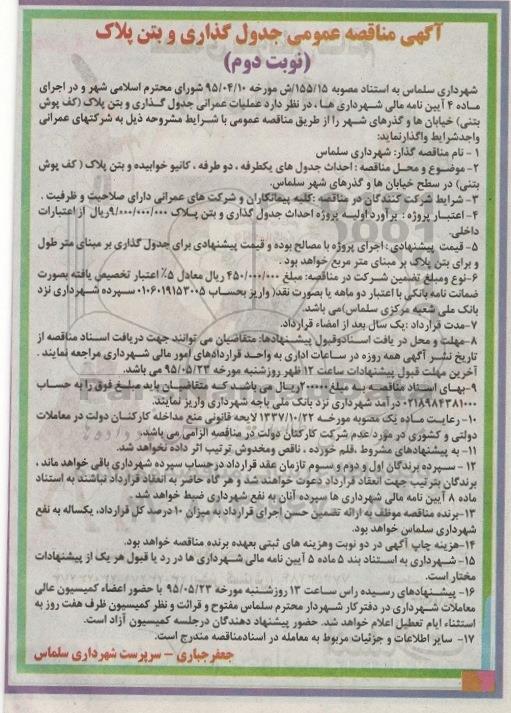 آگهی مناقصه عمومی جدول گذاری و بتن پلاک
(نوبت دوم)
شهرداری سلماس به استناد مصوبه ۱۵۵/۱۵/ش مورخه ۹۵/۰۴/۱۰ شورای محترم اسلامی شهر و در اجرای
ماده ۴ آیین نامه مالی شهرداری ها ، در نظر دارد عملیات عمرانی جدول گذاری و بتن پلاک (کف پوش
بتنی) خیابان ها و گذرهای شهر را از طریق مناقصه عمومی با شرایط مشروحه ذیل به شرکتهای عمرانی
واجدشرایط واگذارنماید:
۱ - نام مناقصه گذار: شهرداری سلماس
۲- موضوع و محل مناقصه : احداث جدول های یکطرفه ، دو طرفه ، کانیو خوابیده و بتن پلاک ( کف پوش
بتنی) در سطح خیابان ها و گذرهای شهر سلماس.
۳- شرایط شرکت کنندگان در مناقصه :کلیه پیمانکاران و شرکت های عمرانی دارای صلاحیت و ظرفیت .
۴- اعتبار پروژه : برآورد اولیه پروژه احداث جدول گذاری و بتن پلاک ۹/۰۰۰/۰۰۰/۰۰۰ریال از اعتبارات
داخلی.
۵- قیمت پیشنهادی : اجرای پروژه با مصالح بوده و قیمت پیشنهادی برای جدول گذاری بر مبنای متر طول
و برای بتن پلاک بر مبنای متر مربع خواهد بود .
۶-نوع ومبلغ تضمین شرکت در مناقصه: مبلغ ۴۵۰/۰۰۰/۰۰۰ ریال معادل ۵٪ اعتبار تخصیص یافته بصورت
ضمانت نامه بانکی با اعتبار دو ماهه یا بصورت نقد( واریز بحساب ۰۱۰۶۰۱۹۱۵۳۰۰۵ سپرده شهرداری نزد
بانک ملی شعبه مرکزی سلماس)می باشد.
۷-مدت قرارداد :یک سال بعد از امضاء قرارداد.
۸-مهلت و محل در یافت اسنادوقبول پیشنهادها: متقاضیان می توانند جهت دریافت اسناد مناقصه از
تاریخ نشر آگهی همه روزه در ساعات اداری به واحد قراردادهای امور مالی شهرداری مراجعه نمایند .
آخرین مهلت قبول پیشنهادات ساعت ۱۲ ظهر روزشنبه مورخه ۹۵/۰۵/۲۳ می باشد.
۹-بهای اسناد مناقصه به مبلغ ۲۰۰۰۰۰ریال می باشد که متقاضیان باید مبلغ فوق را به حساب
۰۲۱۸۹۸۴۳۸۱۰۰۰ درآمد شهرداری نزد بانک ملی باجه شهرداری واریز نمایند.
۱۰- رعایت ماده یک مصوبه مورخه ۱۳۳۷/۱۰/۲۲ لایحه قانونی منع مداخله کارکنان دولت در معاملات
دولتی و کشوری در مورد عدم شرکت کارکنان دولت در مناقصه الزامی می باشد.
۱۱- به پیشنهادهای مشروط ،قلم خورده ، ناقص ومخدوش ترتیب اثر داده نخواهد شد.
۱۲ - سپرده برندگان اول و دوم و سوم تازمان عقد قرارداد درحساب سپرده شهرداری باقی خواهد ماند ،
برندگان بترتیب جهت انعقاد قرارداد دعوت خواهند شد و هر گاه حاضر به انعقاد قرارداد نباشند به استناد
ماده ۸ آیین نامه مالی شهرداری ها سپرده آنان به نفع شهرداری ضبط خواهد شد .
۱۳-برنده مناقصه موظف به ارائه تضمین حسن اجرای قرارداد به میزان ۱۰ درصد کل قرارداد، یکساله به نفع
شهرداری سلماس خواهد بود.
۱۴-هزینه چاپ آگهی در دو نوبت وهزینه های ثبتی بعهده برنده مناقصه خواهد بود.
۱۵-شهرداری به استناد بند ۵ ماده ۵ آیین نامه مالی شهرداری ها در رد یا قبول هر یک از پیشنهادات
مختار است.
۱۶- پیشنهادهای رسیده راس ساعت ۱۳ روزشنبه مورخه ۹۵/۰۵/۲۳ با حضور اعضاء کمیسیون عالی
معاملات شهرداری در دفتر کار شهردار محترم سلماس مفتوح و قرائت و نظر کمیسیون ظرف هفت روز به
استثناء ایام تعطیل اعلام خواهد شد. حضور پیشنهاد دهندگان درجلسه کمیسیون آزاد است.
۱۷- سایر اطلاعات و جزئیات مربوط به معامله در اسنادمناقصه مندرج است.
جعفرجباری - سرپرست شهرداری سلماس